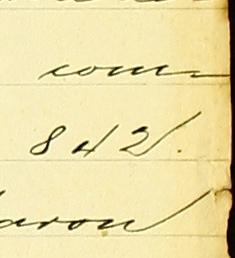 com-
842.
aron